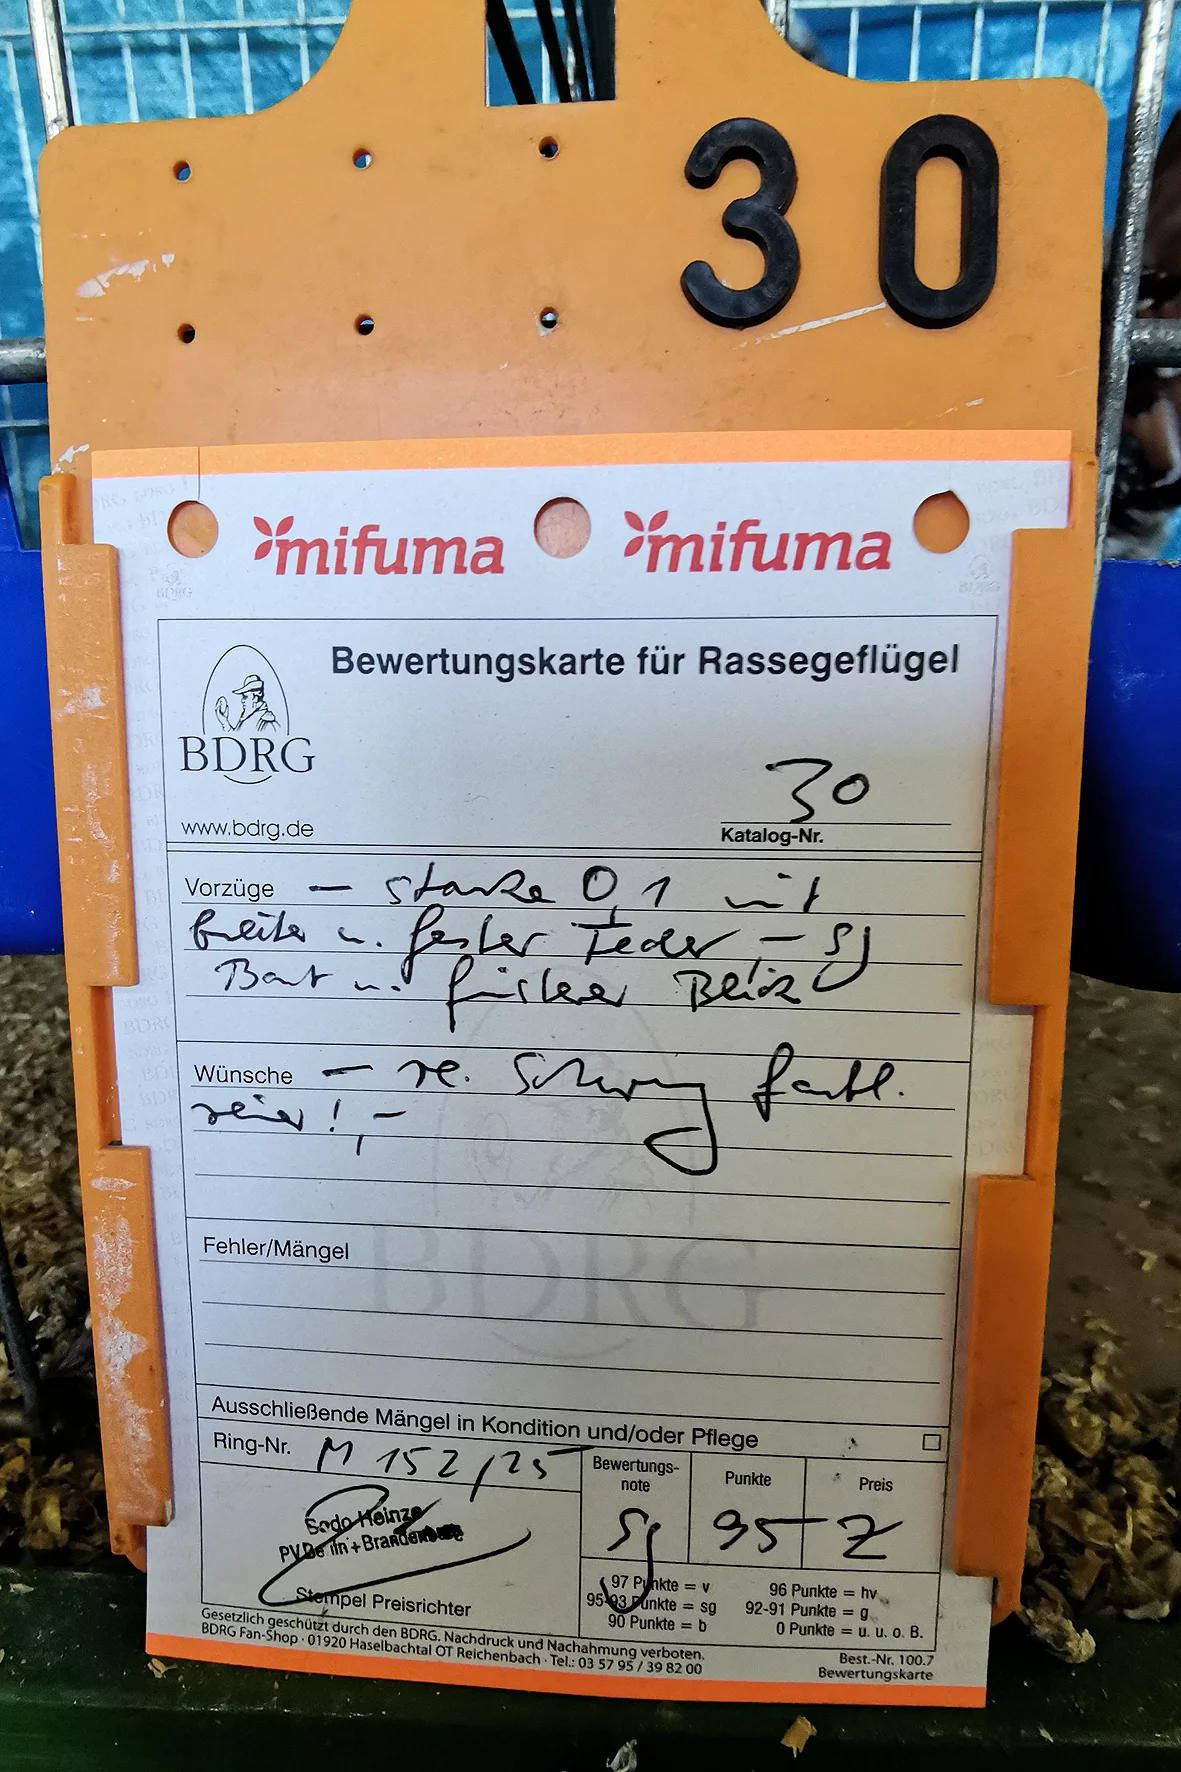 30
mifuma mifuma
Bewertungskarte für Rassegeflügel
BDRG
www.bdrg.de
30
Katalog-Nr.
Vorzüge – starke 0,1 mit
breiter u. fester Feder, – sg
Bart u. finsterer Blick
Wünsche – re. Schwung farbl.
reiner!, –
BDRG
Fehler/Mängel
Ausschließende Mängel in Kondition und/oder Pflege
Ring-Nr. M 152/25
Bewertungs-
note Punkte Preis
sg 95 Z
Heinze
Stempel Preisrichter
97 Punkte = v 96 Punkte = hv
95-93 Punkte = sg 92-91 Punkte = g
90 Punkte = b 0 Punkte = u. u. o. B.
Gesetzlich geschützt durch den BDRG. Nachdruck und Nachahmung verboten.
BDRG Fan-Shop · 01920 Haselbachtal OT Reichenbach · Tel.: 03 57 95 / 39 82 00
Best.-Nr. 100.7
Bewertungskarte